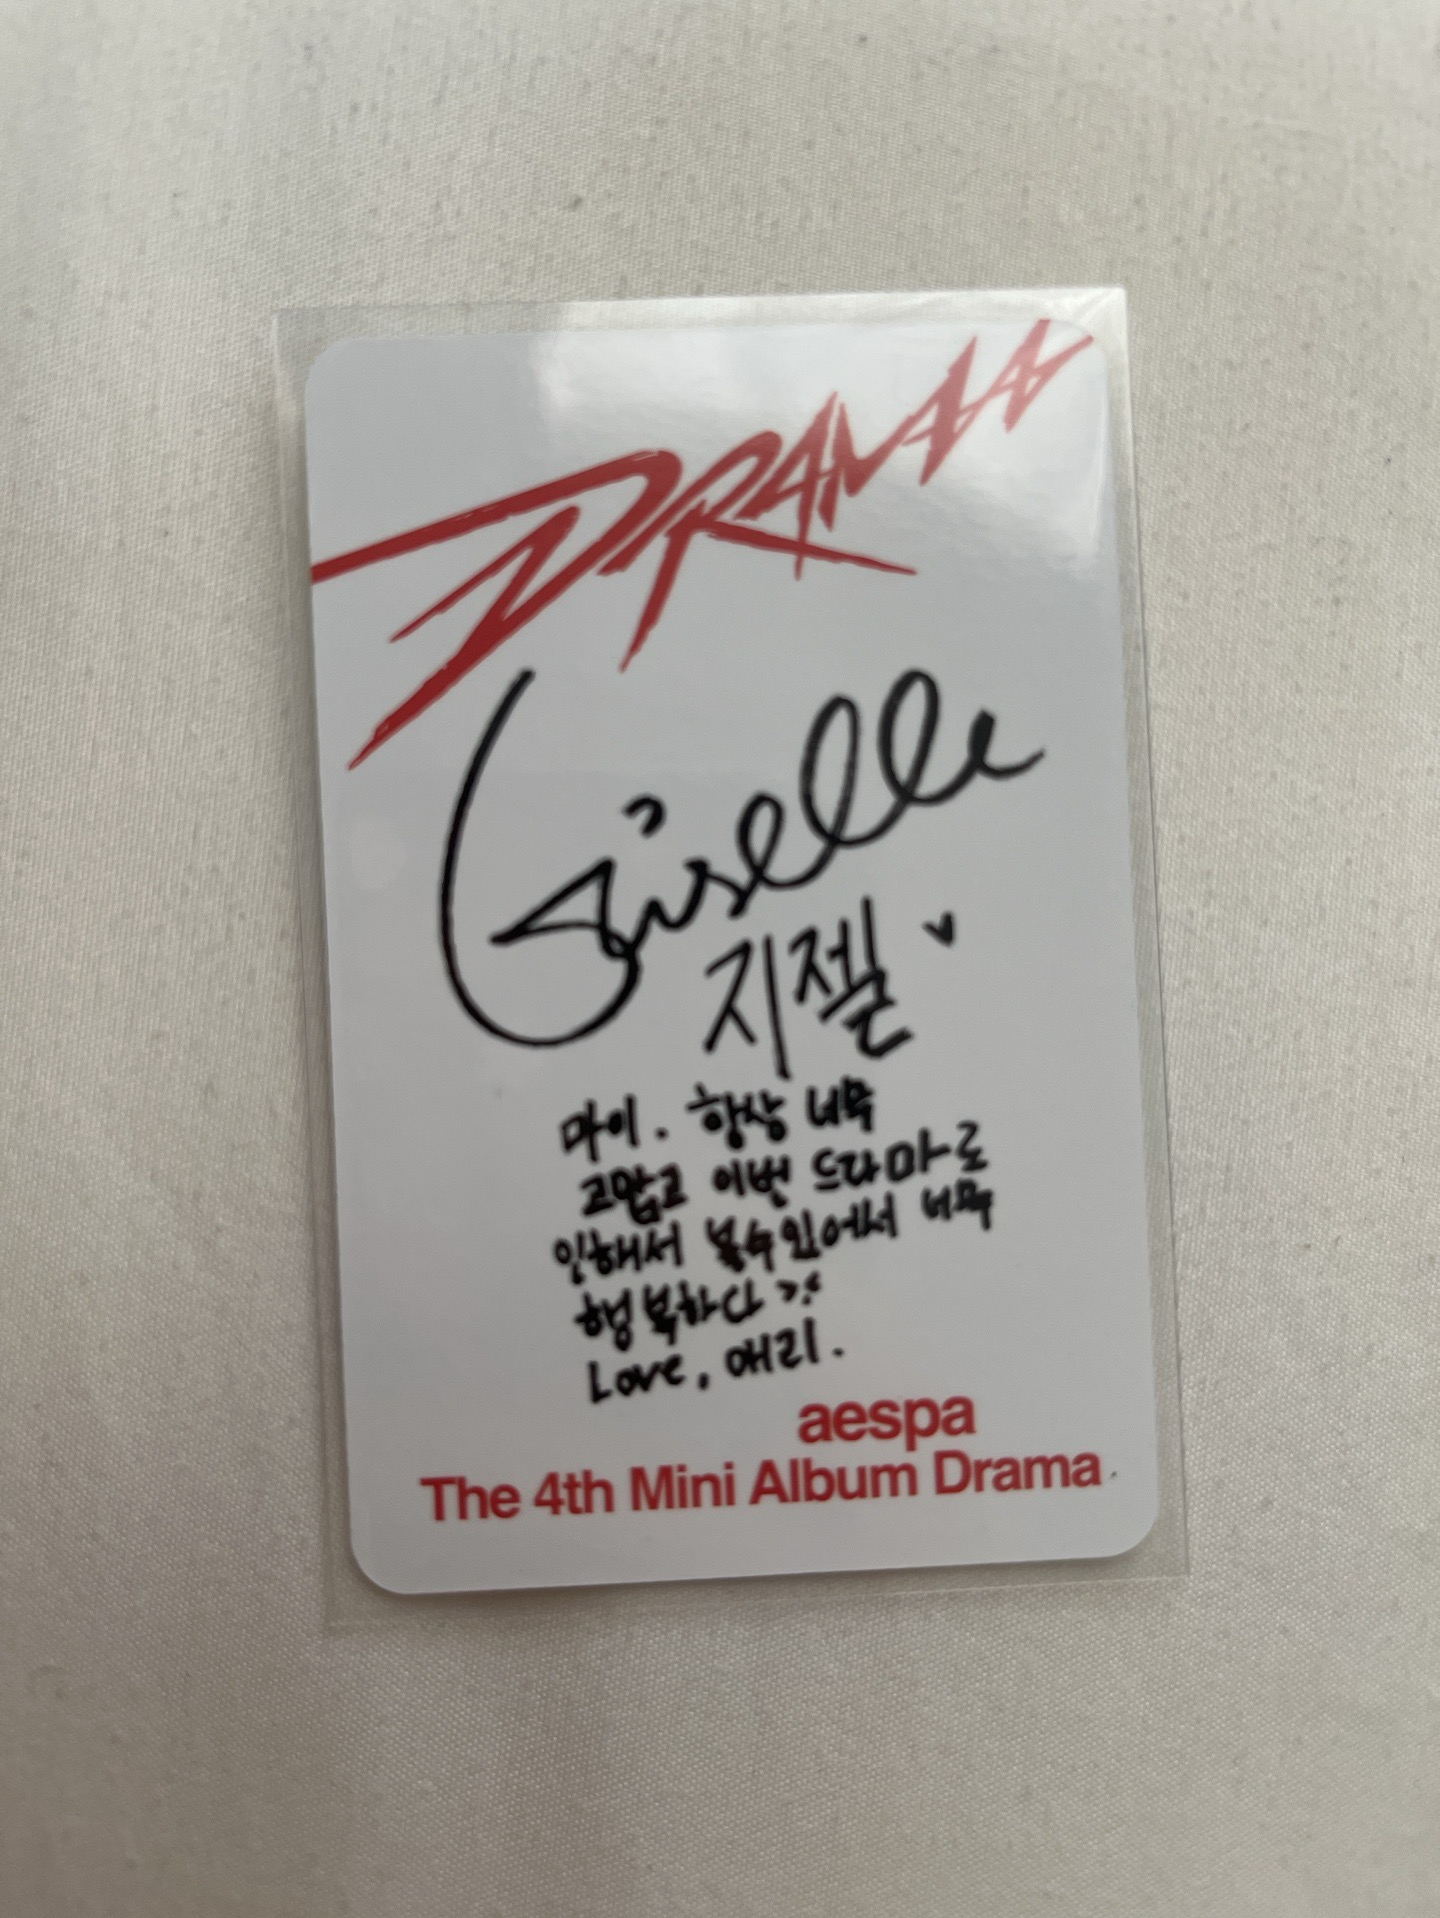 DRAMA
Giselle
지젤
마이. 항상 너무
고맙고 이번 드라마로
인해서 볼수있어서 너무
행복하다
Love, 애리.
aespa
The 4th Mini Album Drama